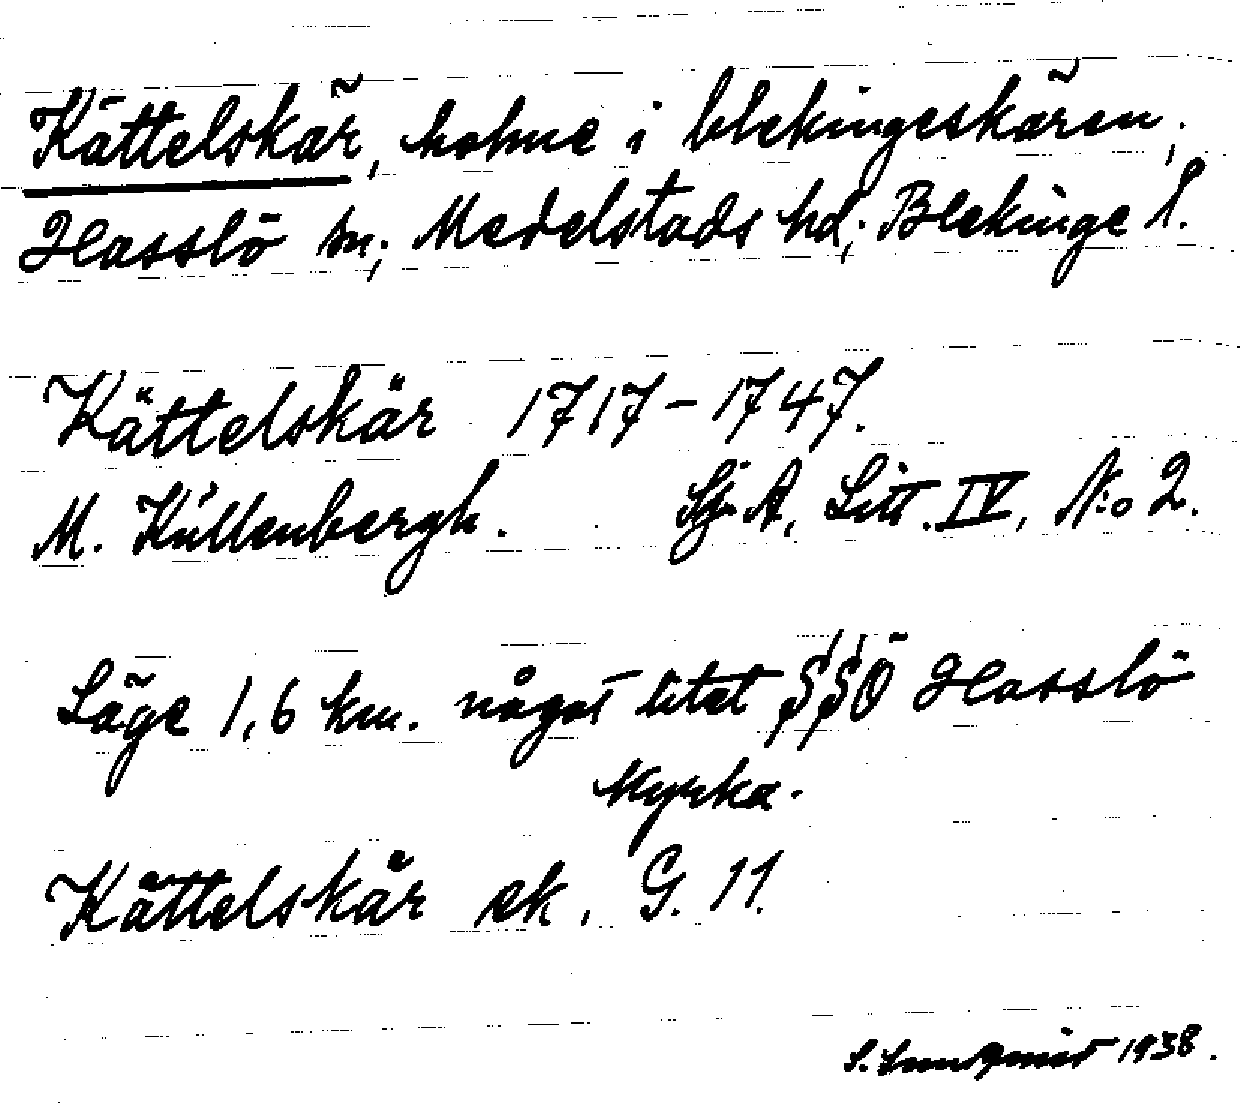 Kättelskär, holme i blekingeskären,
Hasslö sn; Medelstads hd; Blekinge l.
Kättelskär 1717-1747.
M. Küllenbergh. Sj. A, Litt. IV, N:o 2.
Läge 1,6 km. något litet SSÖ Hasslö
kyrka.
Kättelskär ek. G. 11.
S. Lundqvist 1938.